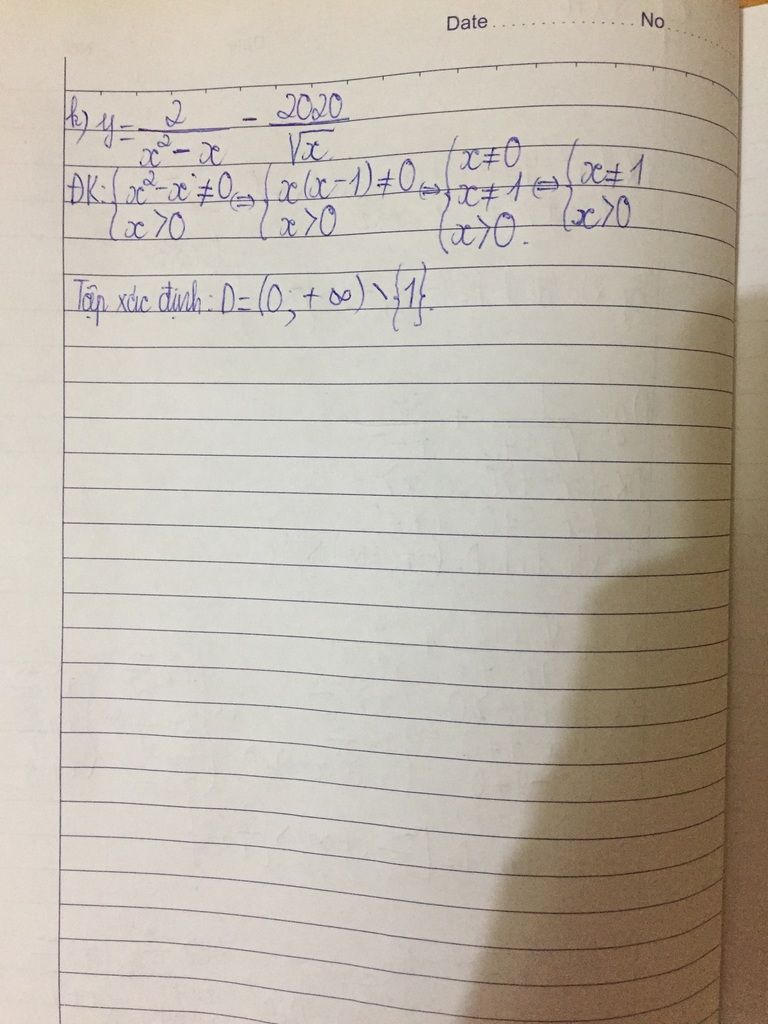 Date ............... No ........
k) y = 2/(x² - x) - 2020/√x
ĐK: { x² - x ≠ 0 ; x > 0 ⇔ { x(x-1) ≠ 0 ; x > 0 ⇔ { x ≠ 0 ; x ≠ 1 ; x > 0. ⇔ { x ≠ 1 ; x > 0
Tập xác định: D = (0; +∞) \ {1}.